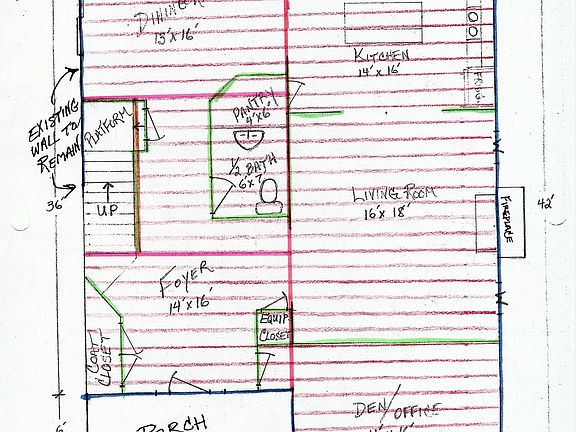 DINING R
13'x16'
KITCHEN
14'x16'
FRIG.
EXISTING
WALL TO
REMAIN
PLATFORM
PANTRY
4'x6'
1/2 BATH
6'x7'
UP
36'
LIVING ROOM
16'x18'
FIREPLACE
42'
FOYER
14'x16'
EQUIP
CLOSET
COAT
CLOSET
PORCH
DEN/OFFICE